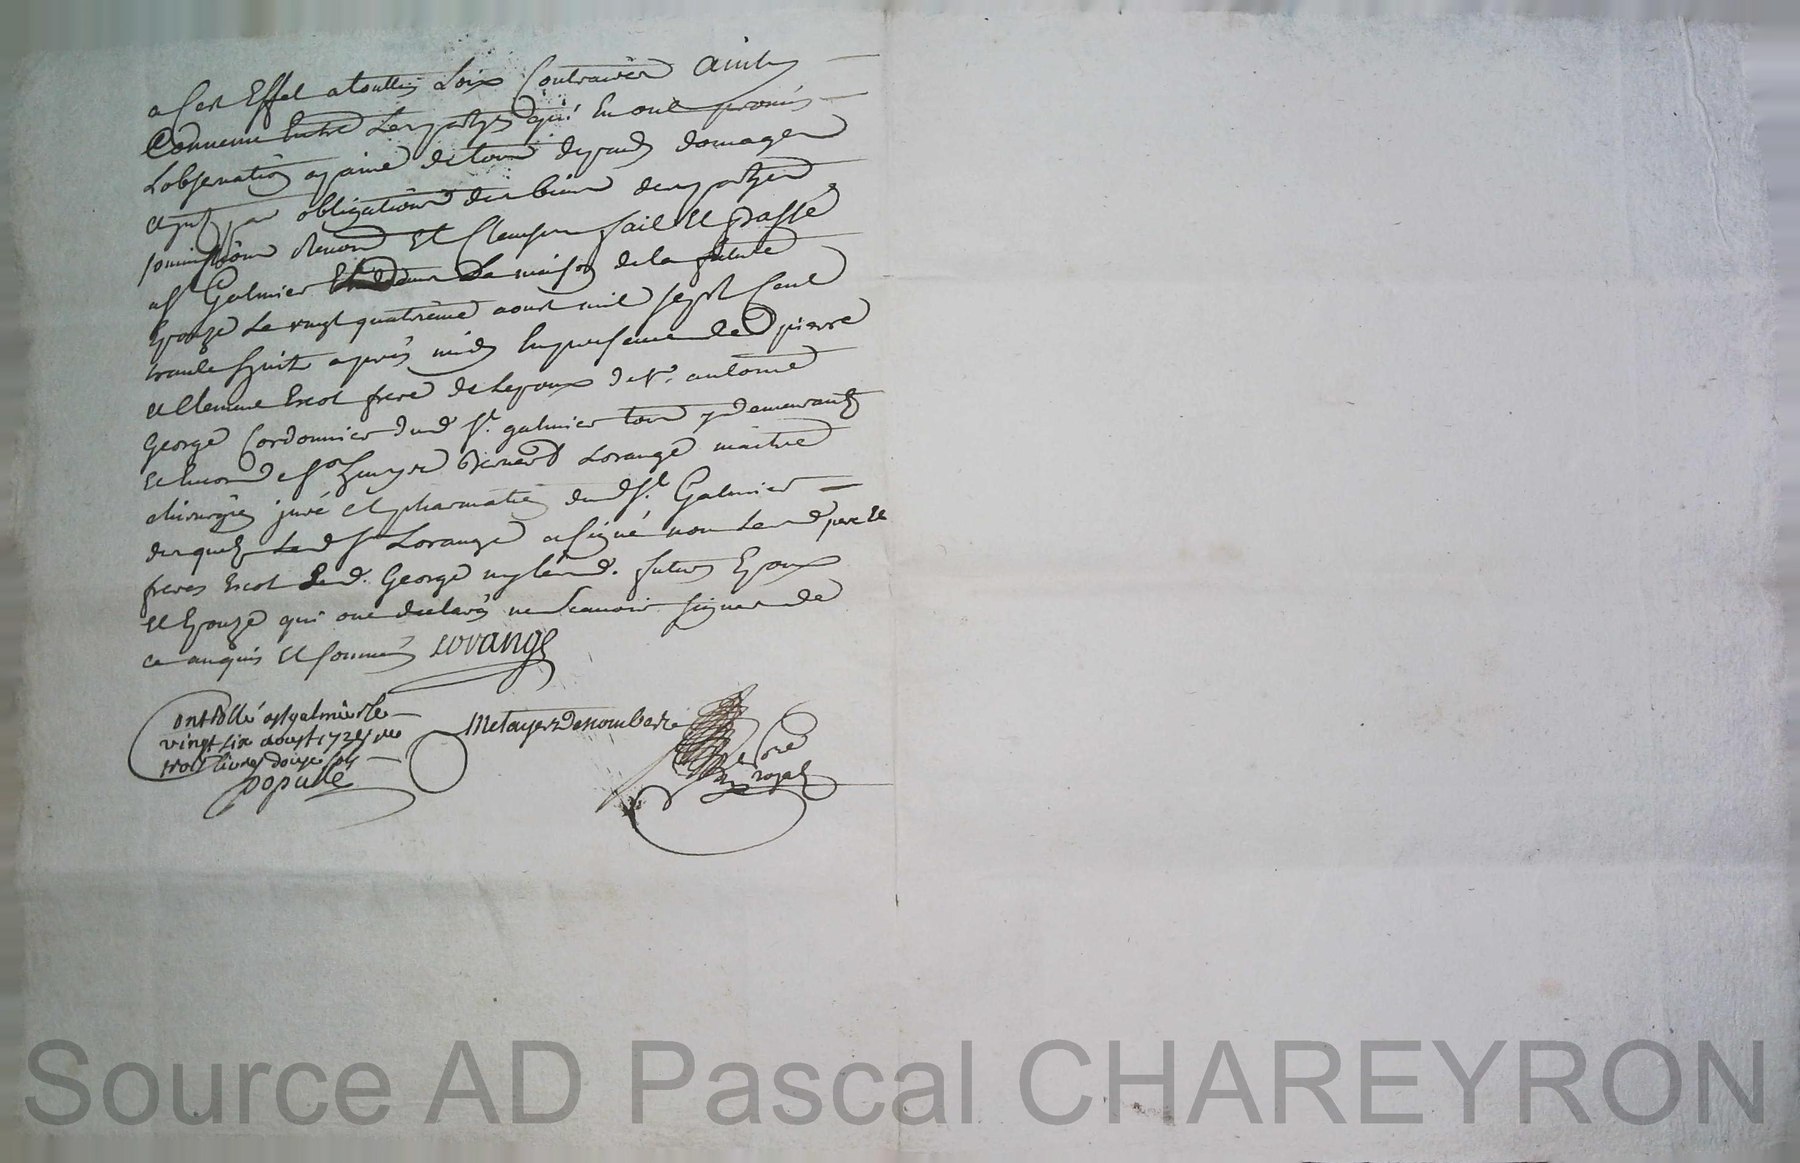 a Cest Effet a touttes Loix Contraires Ainsy
Convenu Entre Les partyes qui En ont promis
Lobservation a paine de tous depends domages
par obligations des biens des partyes
soumissions Renon Et Clauses fait Et Passé
a St Galmier dans La maison de la future
Epouze Le vingt quatrieme aoust mil sept Cent
trante huit apres midy En presence de pierre
et Clemens Escot frere de Lepoux de Sr. antoine
George Cordonnier dud St. galmier tous y demeurants
Et Encore de Sr Bernard Lorange maitre
chirurgien juré Et pharmatien dud St. Galmier
desquels Led Sr Lorange a signé non Lesd
freres Escot Led. George ny lesd. futurs Epoux
Et Epouze qui ont declarés ne Scavoir signer de
ce anquis Et sommés Lorange
Controllé a st galmier le
vingt six aoust 1738 reçu
trois livres douze sols
popule
Metayer Desombade
royal
Source AD Pascal CHAREYRON